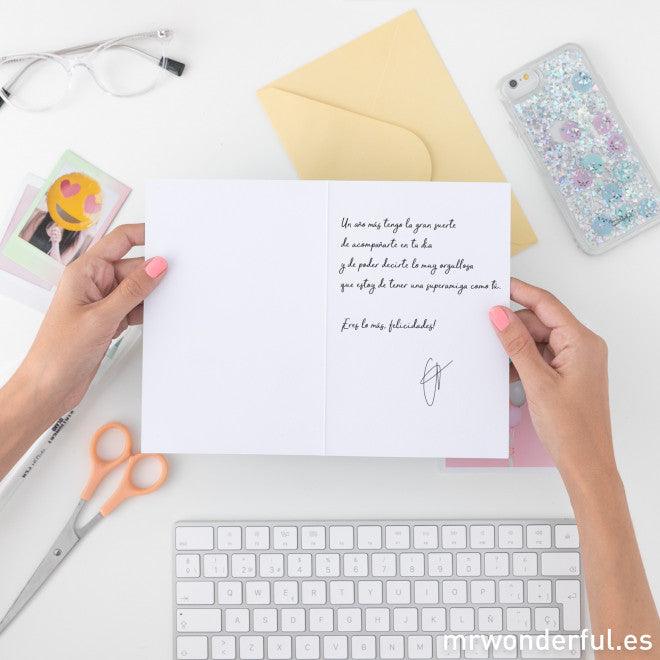 Un año más tengo la gran suerte
de acompañarte en tu día
y de poder decirte lo muy orgullosa
que estoy de tener una superamiga como tú.
¡Eres lo más, felicidades!
mrwonderful.es